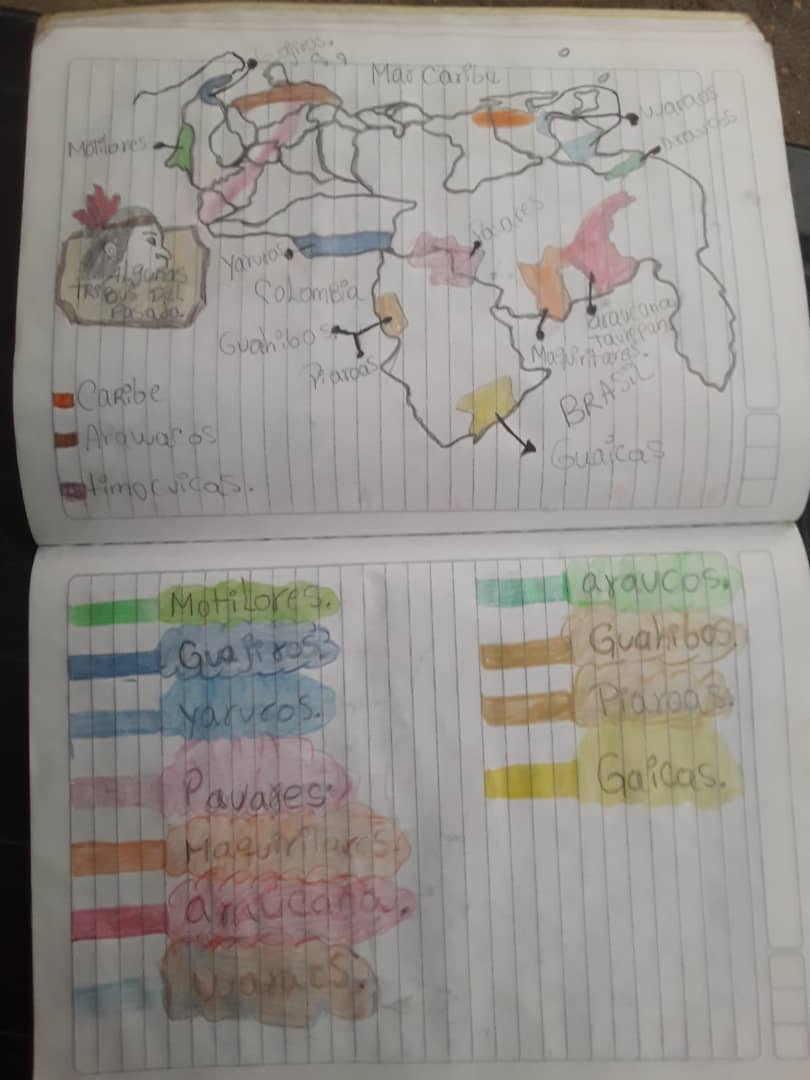 Guajiros.
Mar Caribe
Waraos
Araucos
Motilones
Algunas
Tribus Del
Pasado.
Yaruros
Pavares
Colombia
Guahibos
Piaroas
Araucana
Taurepan
Maquiritares.
BRASIL
Guaicas
Caribe
Arawacos
timocuicas.
Motilores.
Guajiros
yarucos.
Pavares
Maquiritares.
araucana.
Waraos.
araucos.
Guahibos.
Piaroas.
Gaicas.